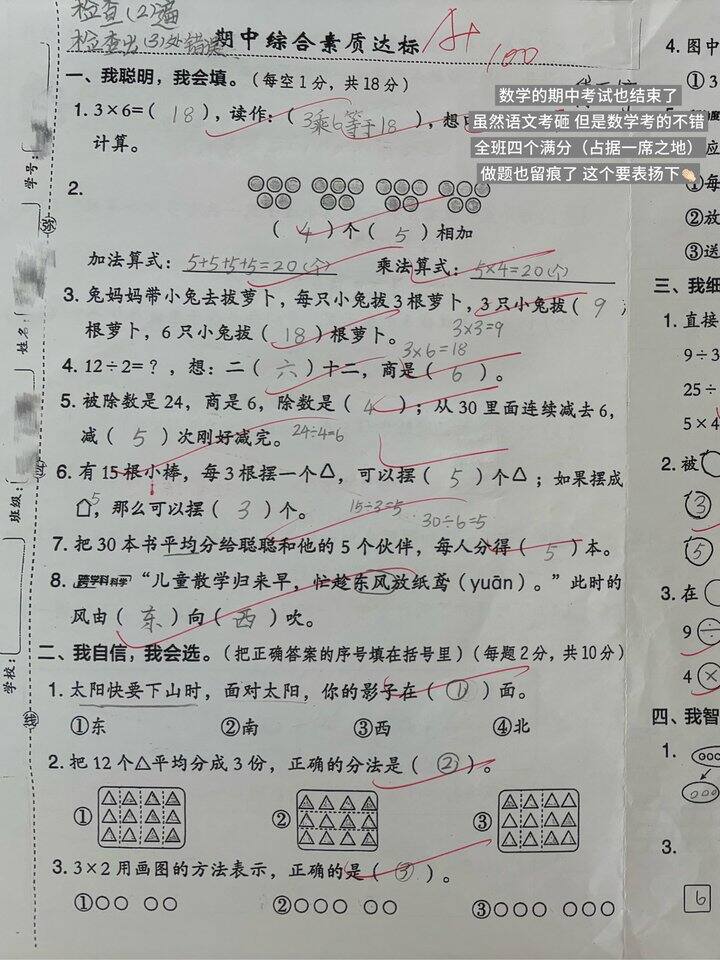 检查(2)遍
检查出(3)处错误
期中综合素质达标
A+
100
数学的期中考试也结束了
虽然语文考砸 但是数学考的不错
全班四个满分（占据一席之地）
做题也留痕了 这个要表扬下👏🏻
学号：
姓名：
班级：
学校：
弥
封
线
一、我聪明，我会填。（每空1分，共18分）
1. 3×6=( 18 )，读作：( 3乘6等于18 )，想
计算。
2.
( 4 )个( 5 )相加
加法算式：5+5+5+5=20(个) 乘法算式：5×4=20(个)
3. 兔妈妈带小兔去拔萝卜，每只小兔拔3根萝卜，3只小兔拔( 9
根萝卜，6只小兔拔( 18 )根萝卜。
3×3=9
3×6=18
4. 12÷2=？，想：二( 六 )十二，商是( 6 )。
5. 被除数是24，商是6，除数是( 4 )；从30里面连续减去6，
减( 5 )次刚好减完。 24÷4=6
6. 有15根小棒，每3根摆一个△，可以摆( 5 )个△；如果摆成
5
，那么可以摆( 3 )个。 15÷3=5
30÷6=5
7. 把30本书平均分给聪聪和他的5个伙伴，每人分得( 5 )本。
8. 跨学科 科学 “儿童散学归来早，忙趁东风放纸鸢(yuān)。”此时的
风由( 东 )向( 西 )吹。
二、我自信，我会选。（把正确答案的序号填在括号里）（每题2分，共10分）
1. 太阳快要下山时，面对太阳，你的影子在( ① )面。
①东 ②南 ③西 ④北
2. 把12个△平均分成3份，正确的分法是( ② )。
① ② ③
3. 3×2用画图的方法表示，正确的是( ③ )。
①○○ ○○ ②○○○ ○○ ③○○○ ○○○
4. 图中
①3
应
①每
②放
③送
三、我细
1. 直接
9÷3
25÷
5×4
2. 被
③
⑤
3. 在
9÷
4×
四、我智
1.
3.
6